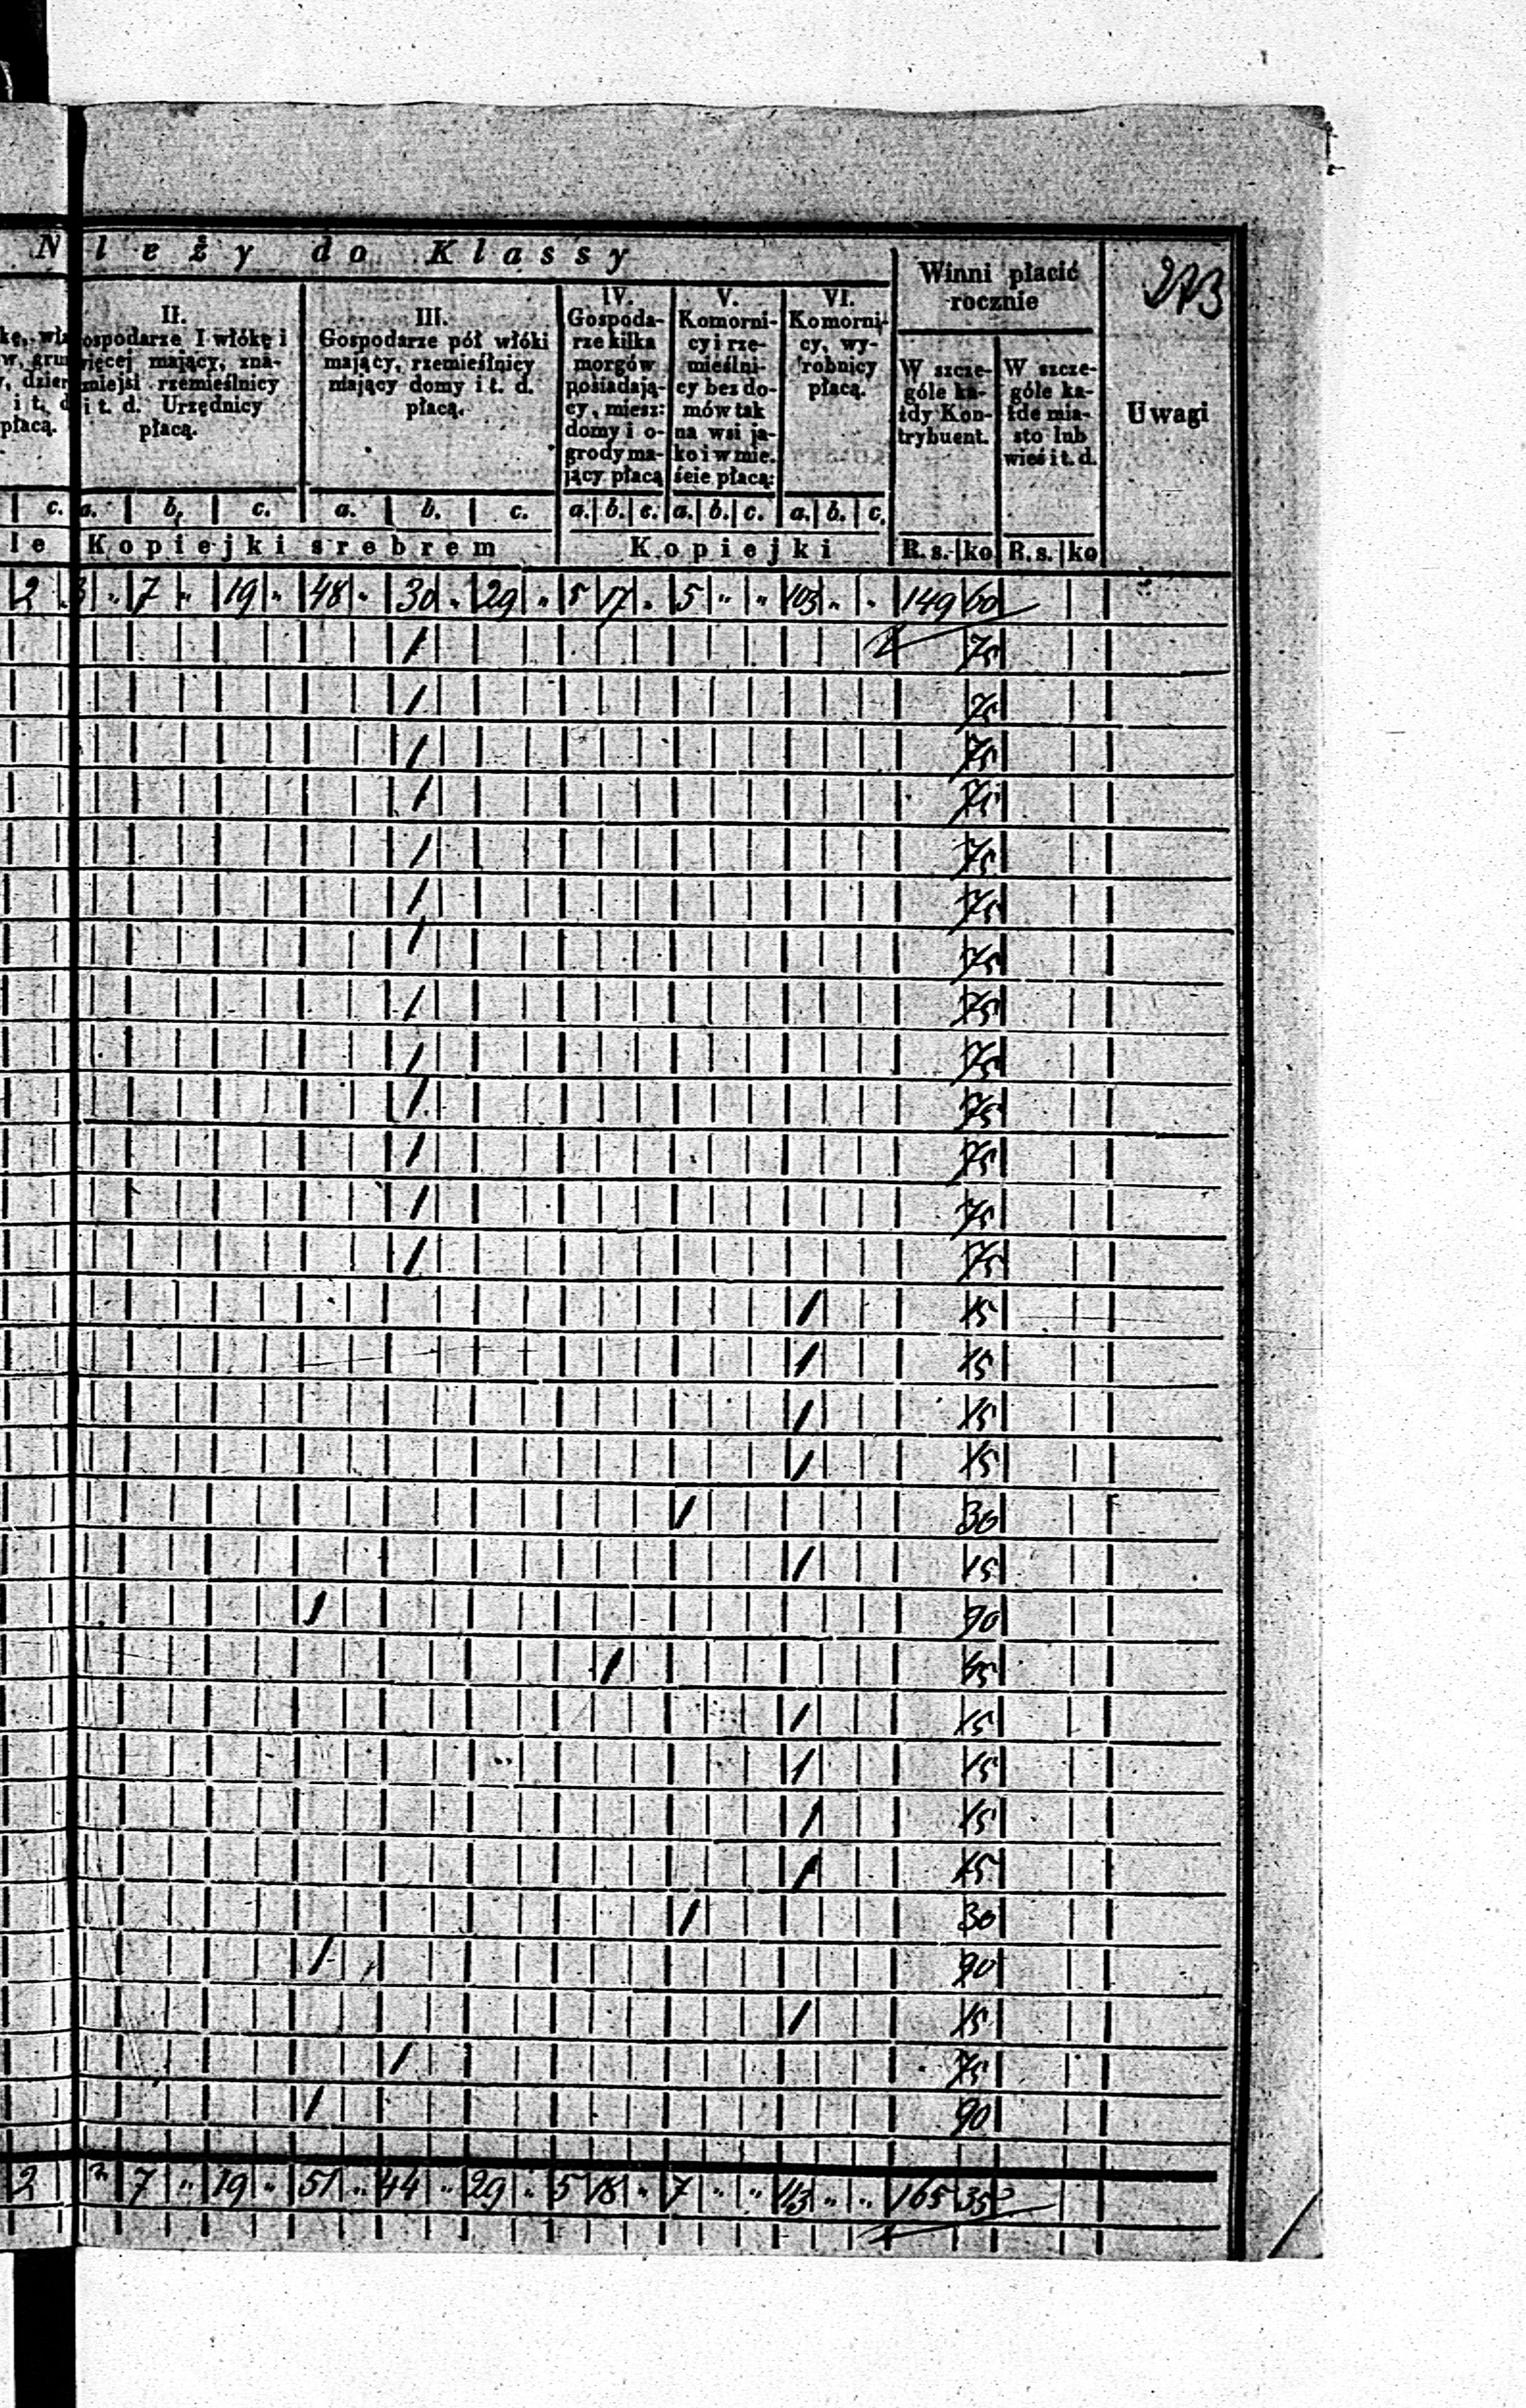 N leży do Klassy
Winni płacić rocznie
273
kę, wła
w, grun
, dzier
i t. d
płacą.
II.
ospodarze I włókę i
więcej mający, zna-
mniejsi rzemieślnicy
i t. d. Urzędnicy
płacą.
III.
Gospodarze pół włóki
mający, rzemieślnicy
mający domy i t. d.
płacą.
IV.
Gospoda-
rze kilka
morgów
posiadają-
cy, miesz:
domy i o-
grody ma-
jący płacą
V.
Komorni-
cy i rze-
mieślni-
cy bez do-
mów tak
na wsi ja-
ko i w mie.
ście płacą:
VI.
Komorni-
cy, wy-
robnicy
płacą.
W szcze-
góle ka-
żdy Kon-
trybuent.
W szcze-
góle ka-
żde mia-
sto lub
wieś i t. d.
Uwagi
c. a. b. c. a. b. c. a. b. c. a. b. c. a. b. c.
le Kopiejki srebrem Kopiejki R. s. ko R. s. ko
2 3 " 7 " 19 " 48 " 30 " 29 " 5 17 " 5 " " 103 " " 149 60
/ 75
/ 75
/ 75
/ 75
/ 75
/ 75
/ 75
/ 75
/ 75
/ 75
/ 75
/ 75
/ 75
/ 15
/ 15
/ 15
/ 15
/ 30
/ 15
/ 90
/ 45
/ 15
/ 15
/ 15
/ 15
/ 30
/ 90
/ 15
/ 75
/ 90
2 7 " 19 " 51 " 44 " 29 " 5 18 " 7 " " 113 " " 165 35